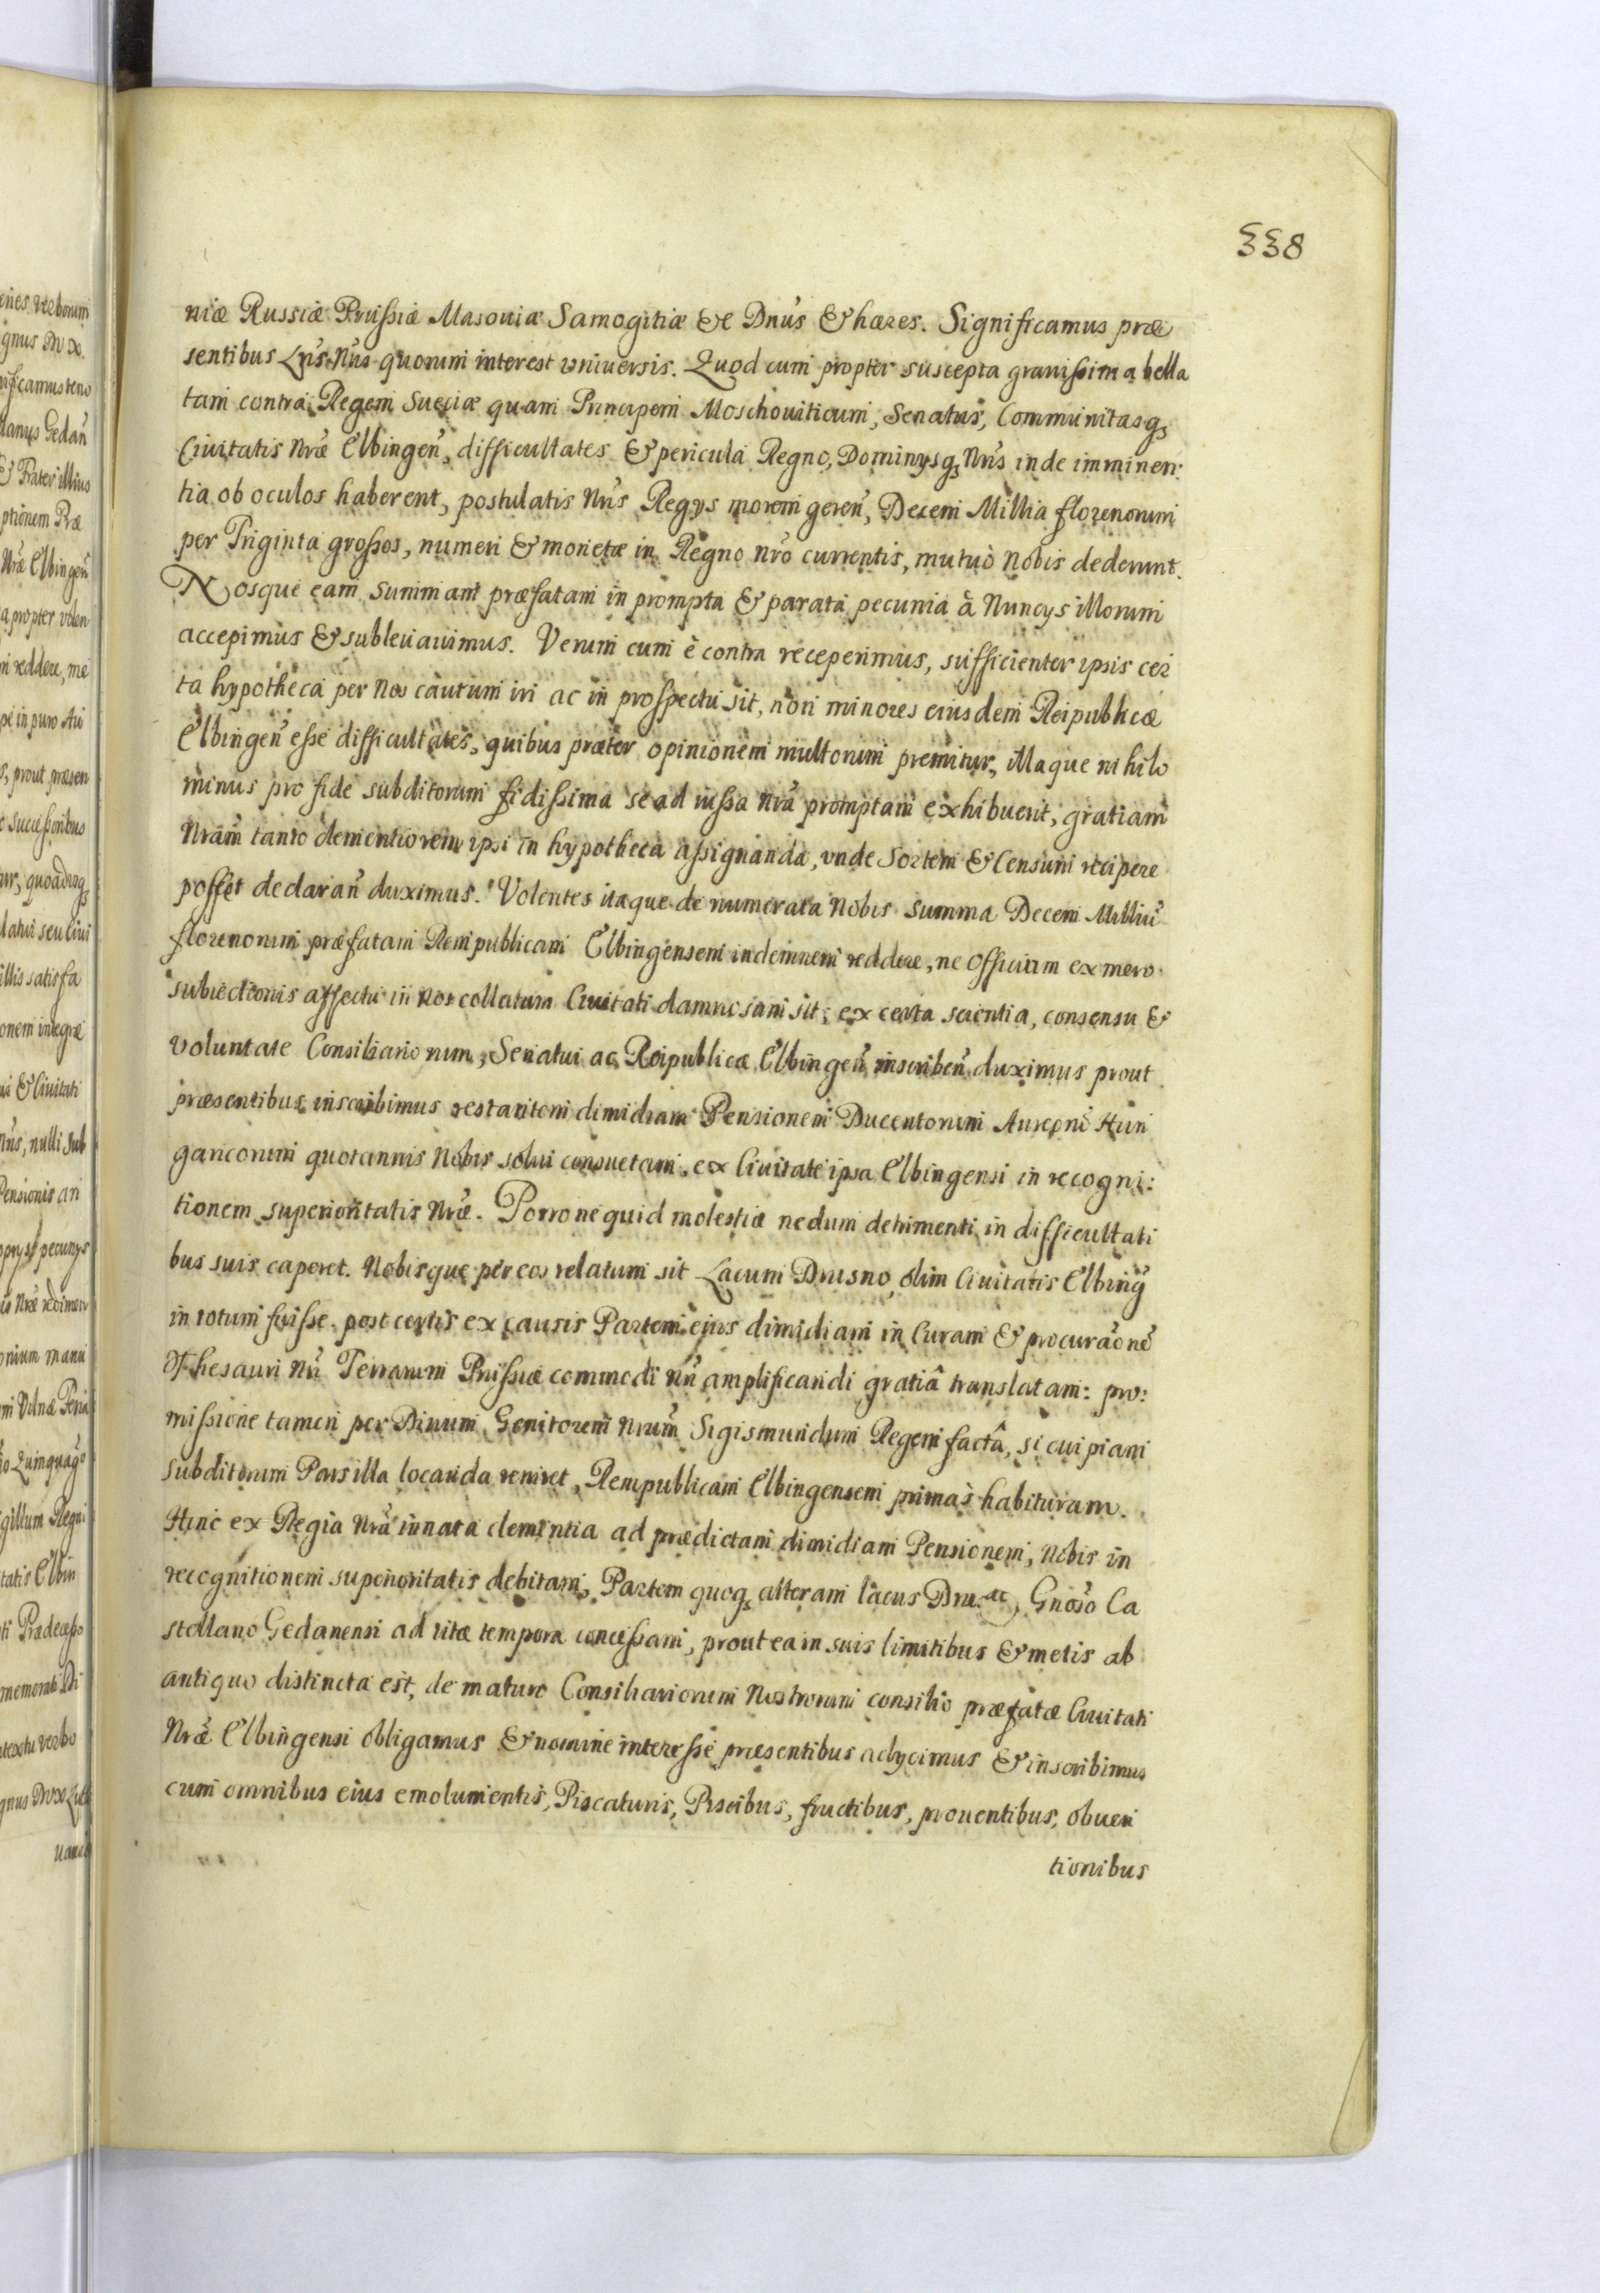 338
niæ Russiæ Prussiæ Masouiæ Samogitiæ &c Dnūs & hæres. Significamus præ
sentibus Lrīs Nrīs quorum interest vniuersis. Quod cum propter suscepta grauissima bella
tam contra Regem Sueciæ quam Principem Moschouiticum, Senatus, Communitasq;
Ciuitatis Nræ Elbingen̄, difficultates & pericula Regno, Dominysq; Nrīs inde imminen:
tia ob oculos haberent, postulatis Nrīs Regys morem geren̄, Decem Millia florenorum
per Triginta grossos, numeri & monetæ in Regno nrō currentis, mutuò Nobis dederunt.
Nosque eam summam præfatam in prompta & parata pecunia à Nuncys illorum
accepimus & subleuauimus. Verum cum è contra receperimus, sufficienter ipsis cer
ta hypotheca per Nos cautum iri ac in prospectu sit, non minores eiusdem Reipublicæ
Elbingen̄ esse difficultates, quibus præter opinionem multorum premitur, illaque nihilo
minus pro fide subditorum fidissima se ad iussa nrā promptam exhibuerit, gratiam
Nrām tanto clementiorem ipsi in hypotheca assignanda, vnde Sortem & Censum recipere
posset declaran̄ duximus. Volentes itaque de numerata Nobis summa Decem Milliū
florenorum præfatam Rempublicam Elbingensem indemnem reddere, ne Officium ex mero
subiectionis affectu in Nos collatum Ciuitati damnosam sit; ex certa scientia, consensu &
voluntate Consiliariorum, Senatui ac Reipublicæ Elbingen̄ inscriben̄ duximus prout
præsentibus inscribimus restantem dimidiam Pensionem Ducentorum Aureorū Hun
garicorum quotannis Nobis solui consuetam, ex Ciuitate ipsa Elbingensi in recogni:
tionem superioritatis Nræ. Porro ne quid molestiæ nedum detrimenti in difficultati
bus suis caperet. Nobisque per eos relatum sit Lacum Drusno olim Ciuitatis Elbinḡ
in totum fuisse. post certis ex causis Partem eius dimidiam in Curam & procuraōnē
Thesauri Nrī Terrarum Prussiæ commodi nrī amplificandi gratiâ translatam: pro:
missione tamen per Diuum Genitorem Nrūm Sigismundum Regem factâ, si cuipiam
subditorum Pars illa locanda veniret, Rempublicam Elbingensem primas habituram.
Hinc ex Regia Nrā innata clementia ad prædictam dimidiam Pensionem, Nobis in
recognitionem superioritatis debitam, Partem quoq; alteram lacus Dru. ac, Gnōso Ca
stellano Gedanensi ad vitæ tempora concessam, prout ea in suis limitibus & metis ab
antiquo distincta est, de maturo Consiliariorum Nostrorum consilio præfatæ Ciuitati
Nræ Elbingensi obligamus & nomine interesse præsentibus adycimus & inscribimus
cum omnibus eius emolumentis, Piscaturis, Piscibus, fructibus, prouentibus, obuen
tionibus